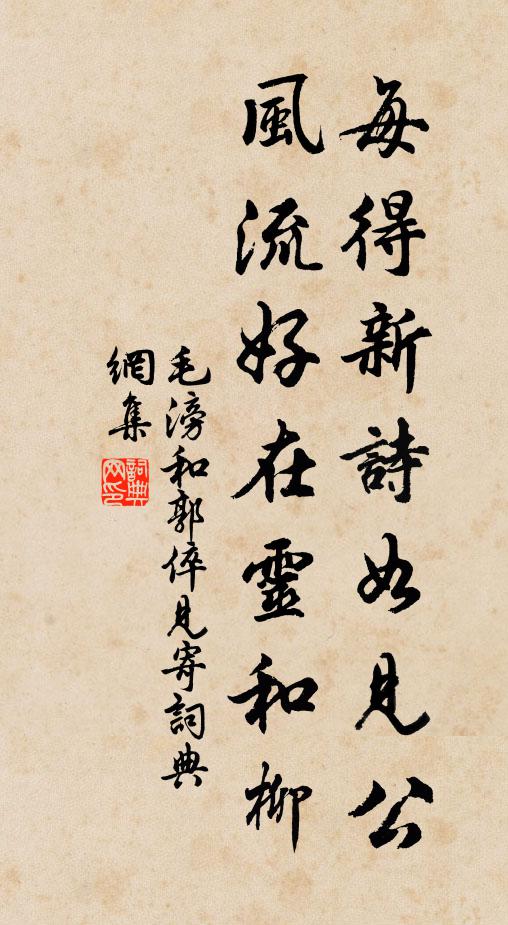 每得新詩如見公
風流好在靈和柳
毛滂和郭倅見寄詞典
網集
詞典
网印